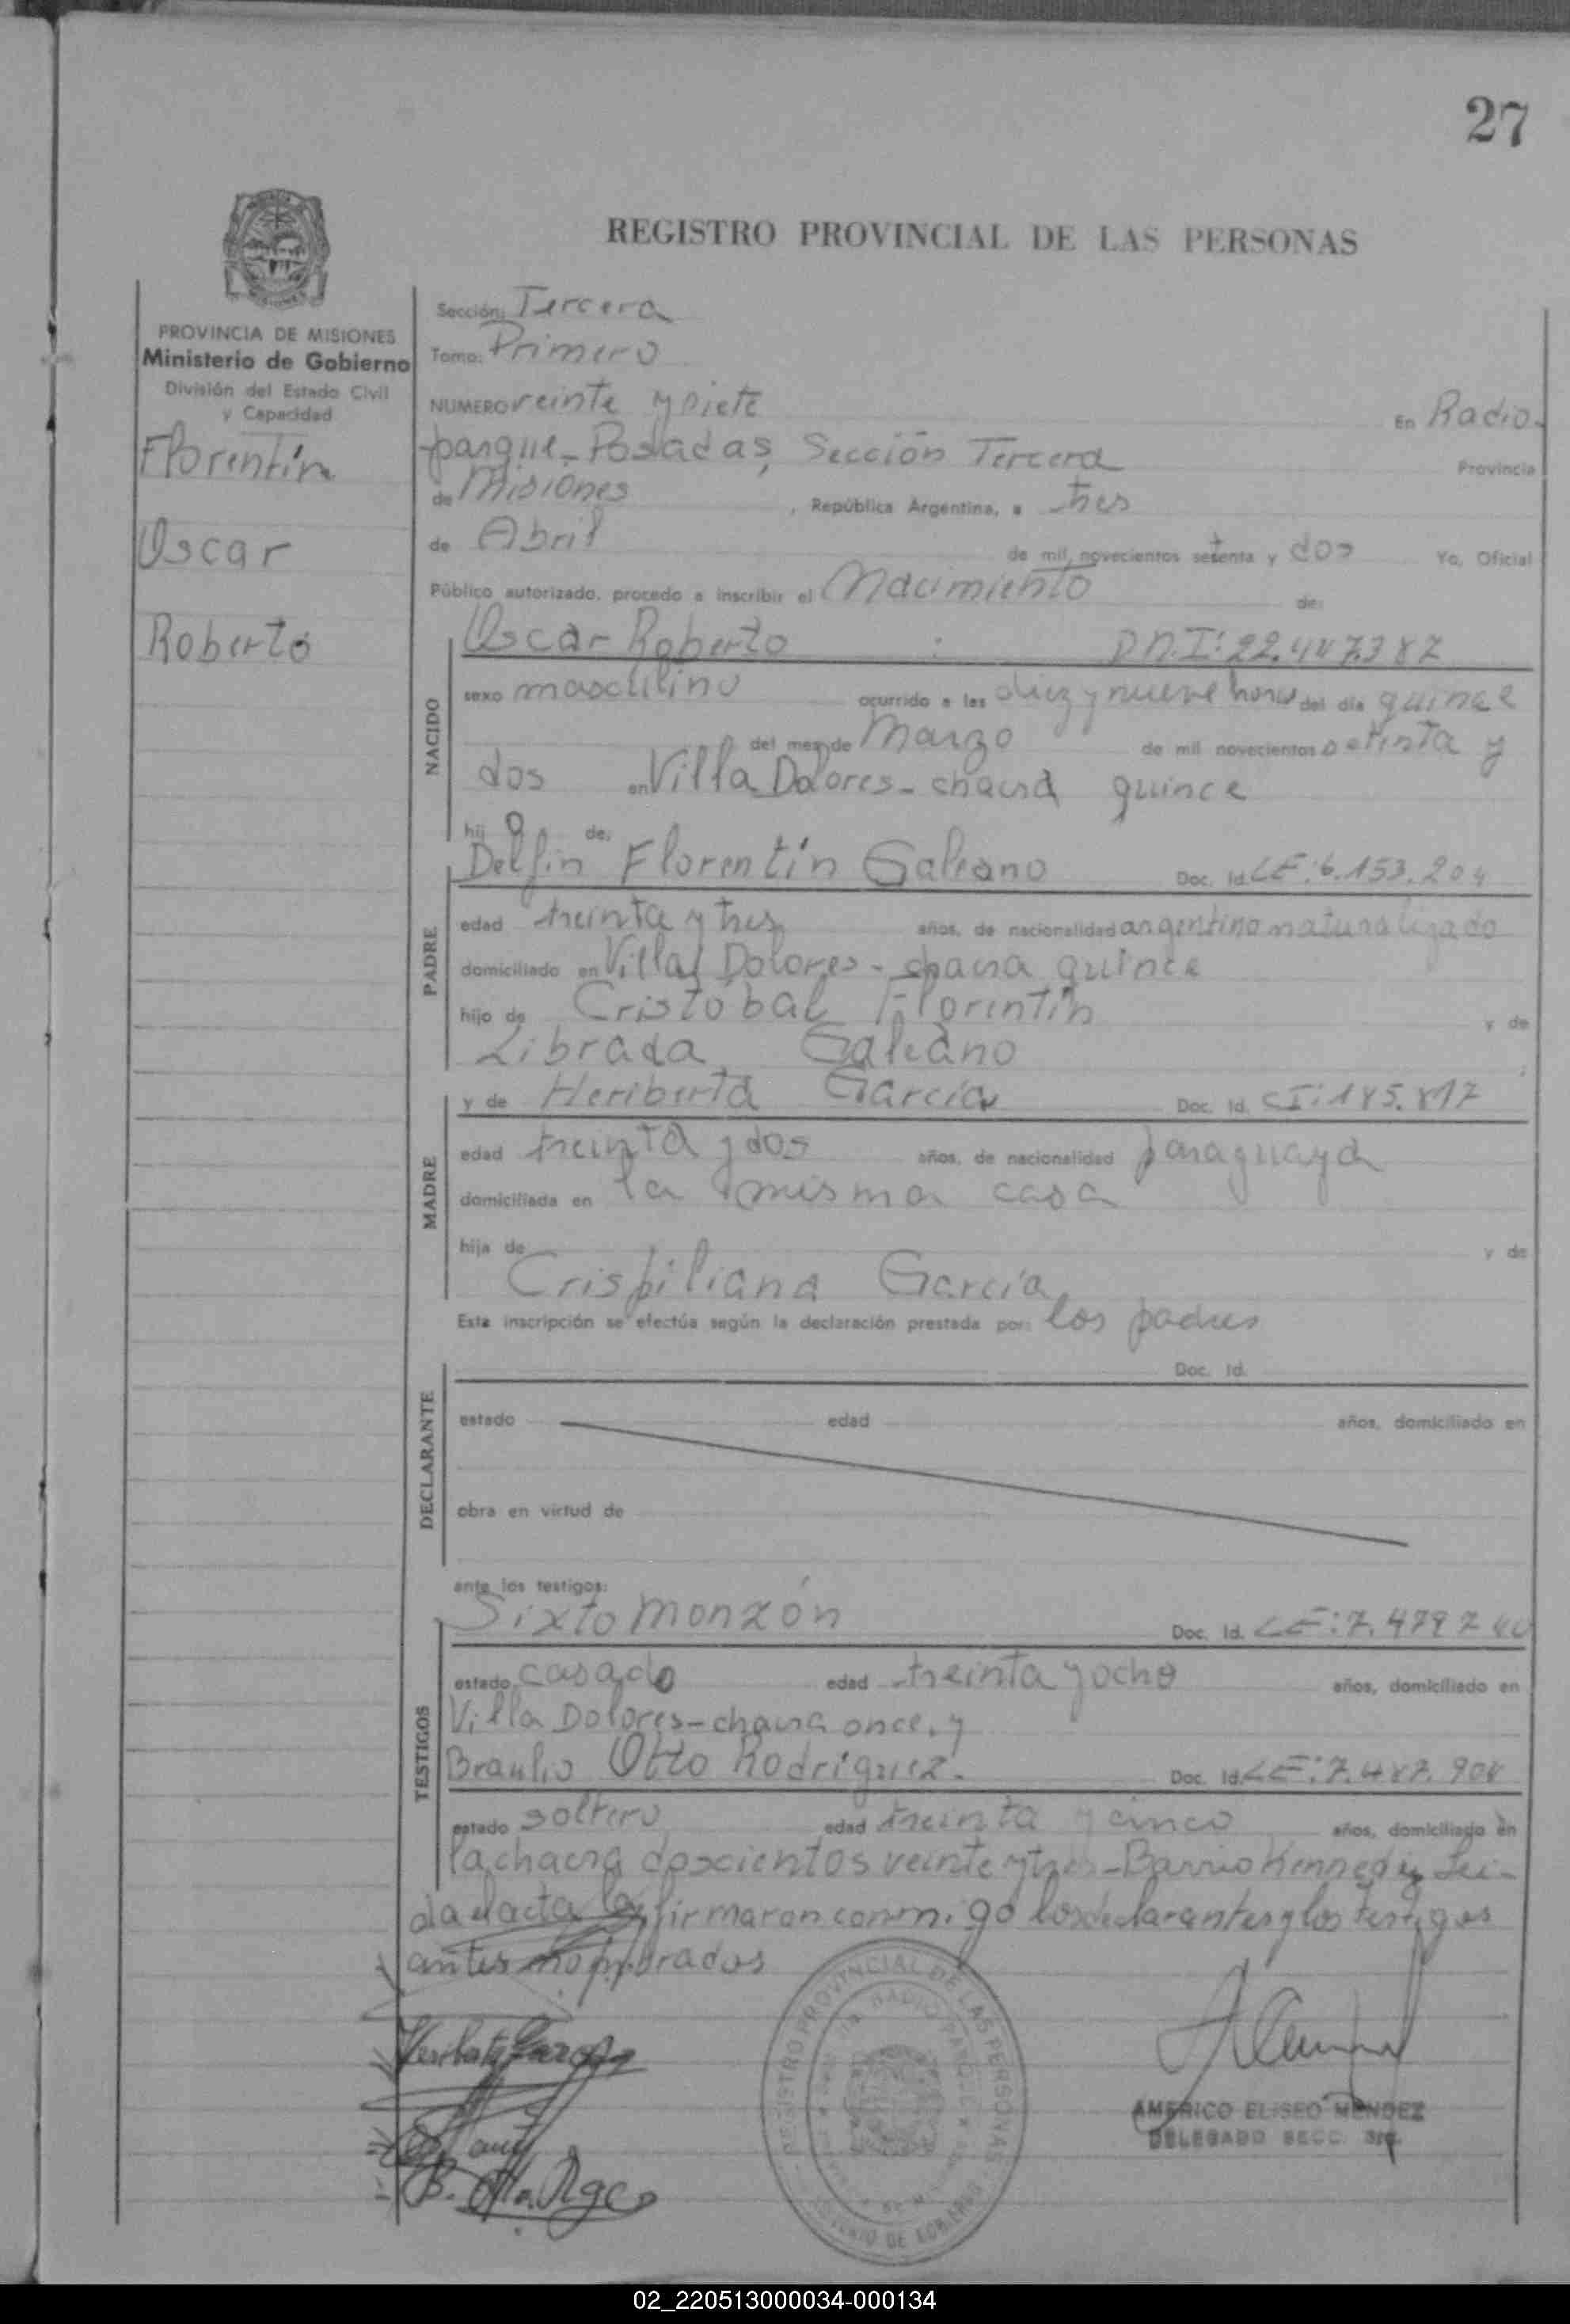 27
REGISTRO PROVINCIAL DE LAS PERSONAS
PROVINCIA DE MISIONES
Ministerio de Gobierno
División del Estado Civil
y Capacidad
Florentín
Oscar
Roberto
Sección: Tercera
Tomo: Primero
NUMERO veinte y siete En Radio-
parque-Posadas, Sección Tercera Provincia
de Misiones, República Argentina, a tres
de Abril de mil novecientos setenta y dos Yo, Oficial
Público autorizado, procedo a inscribir el Nacimiento de:
NACIDO
Oscar Roberto D.N.I: 22.447.387
sexo masculino ocurrido a las diez y nueve horas del día quince
del mes de Marzo de mil novecientos setenta y
dos en Villa Dolores-chacra quince
hij o de:
PADRE
Delfin Florentín Galeano Doc. Id. LE:6.153.204
edad treinta y tres años, de nacionalidad argentino naturalizado
domiciliado en Villa Dolores-chacra quince
hijo de Cristóbal Florentín y de
Librada Galeano
MADRE
y de Heriberta García Doc. Id. CI:185.817
edad treinta y dos años, de nacionalidad paraguaya
domiciliada en la misma casa
hija de y de
Crispiliana García
Esta inscripción se efectúa según la declaración prestada por: los padres
DECLARANTE
Doc. Id.
estado edad años, domiciliado en
obra en virtud de
ante los testigos:
TESTIGOS
Sixto Monzón Doc. Id. LE:7.479.740
estado casado edad treinta y ocho años, domiciliado en
Villa Dolores-chacra once, y
Braulio Otto Rodríguez. Doc. Id. LE:7.487.908
estado soltero edad treinta y cinco años, domiciliado en
la chacra doscientos veinte y tres-Barrio Kennedy Lei-
da el acta la firmaron conmigo los declarantes y los testigos
antes nombrados
Heriberta Garcia
B. Otto Rgez
REGISTRO PROVINCIAL DE LAS PERSONAS
RADIO PARQUE
MINISTERIO DE GOBIERNO
AMERICO ELISEO MENDEZ
DELEGADO SECC. 3ra.
02_220513000034-000134